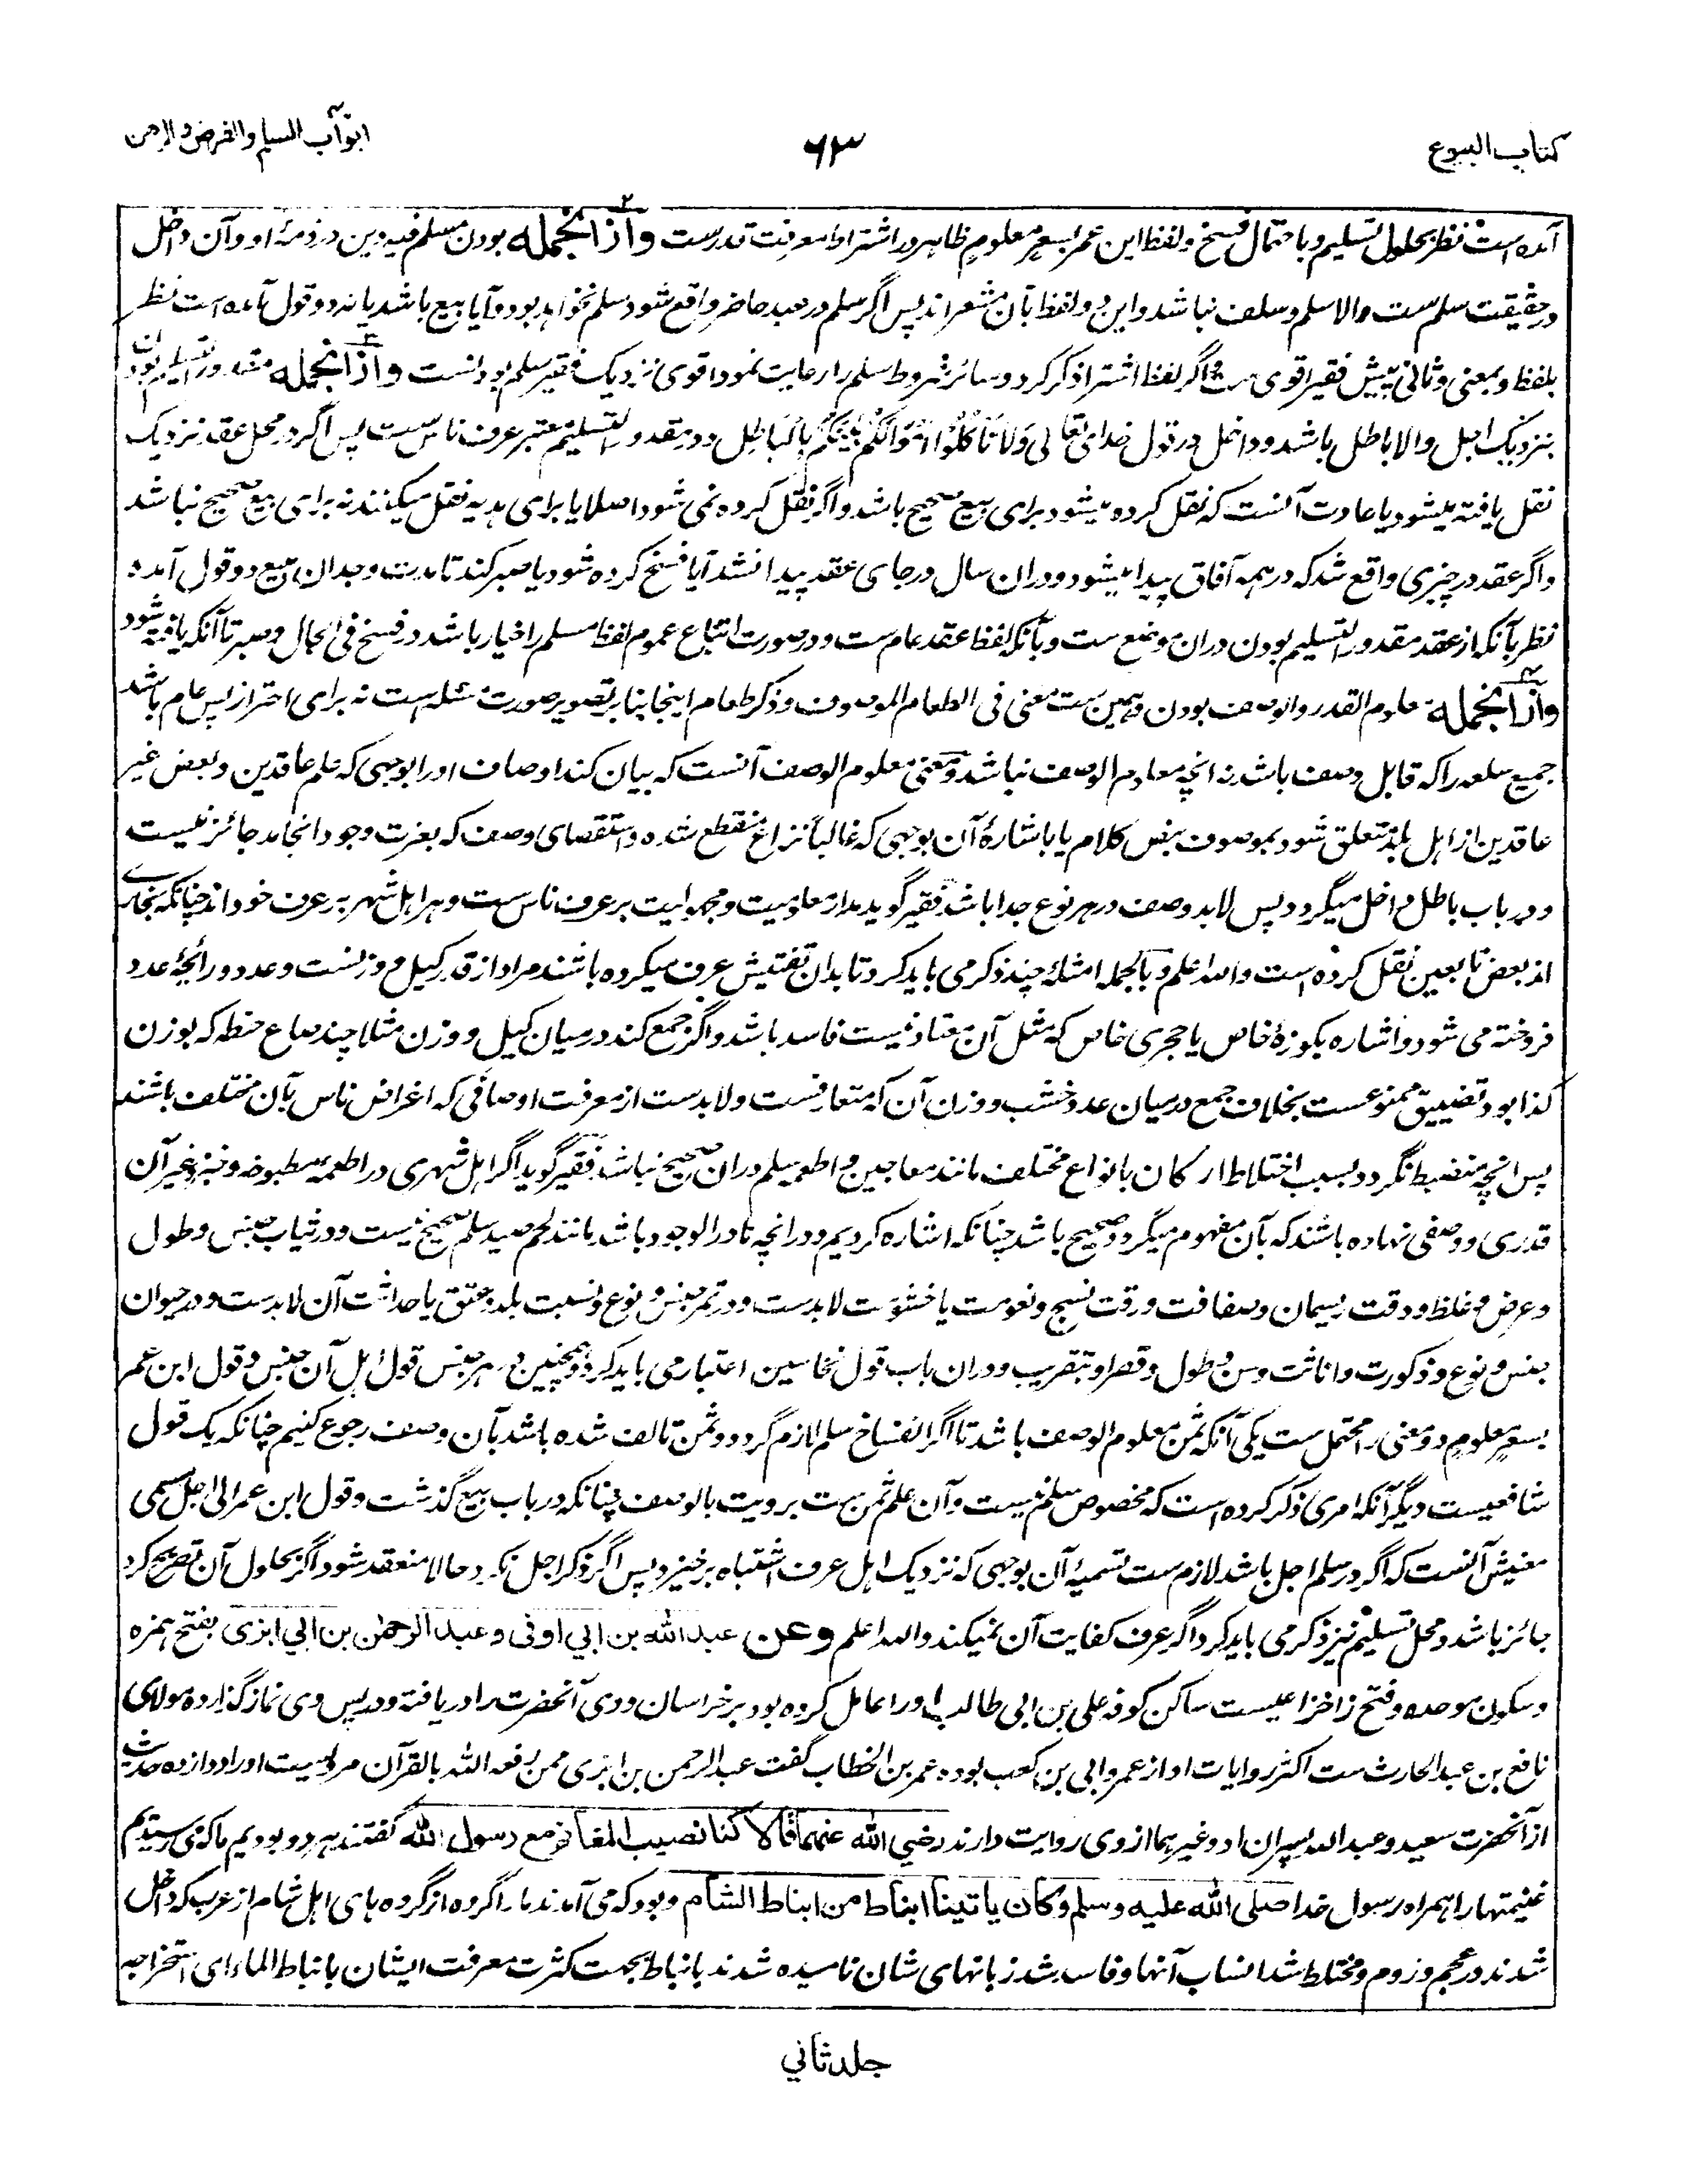 کتاب البیوع
۶۳
ابواب السلم والقرض والرهن
آمده است نظر بحلول تسلیم و باحتمال فسخ و لفظ ابن عمر بسعر معلوم ظاهر در اشتراط معرفت قدرست وازانجمله بودن مسلم فیه دین در ذمهٔ او و آن داخل
در حقیقت سلم ست والا سلم و سلف نباشد و این دو لفظ بآن مشعر اند پس اگر سلم در عبد حاضر واقع شود سلم نخواهد بود و آیا بیع باشد یا نه دو قول آمده است نظر
بلفظ و بمعنی و ثانی پیش فقیر اقوی ست و اگر لفظ اشترا ذکر کرد و سائر شروط سلم را رعایت نمود اقوی نزدیک فقیر سلم بودنست وازانجمله مقدور التسلیم بودن
بنزدیک اجل والا باطل باشد و داخل در قول خدای تعالی وَلَا تَأْكُلُوْا اَمْوَالَكُمْ بَيْنَكُمْ بِالْبَاطِلِ و در مقدور التسلیم معتبر عرف ناس ست پس اگر در محل عقد نزدیک
نقل یافته میشود یا عادت آنست که نقل کرده میشود برای بیع صحیح باشد و اگر نقل کرده نمی شود اصلا یا برای هدیه نقل میکنند نه برای بیع صحیح نباشد
و اگر عقد در چیزی واقع شد که در همه آفاق پیدا میشود و دران سال در جای عقد پیدا نشد آیا فسخ کرده شود یا صبر کند تا مدت وجدان مبیع دو قول آمده
نظر بآنکه از عقد مقدور التسلیم بودن دران موضع ست و بآنکه لفظ عقد عام ست و در صورت اتباع عموم لفظ مسلم را خیار باشد در فسخ فی الحال و صبر تا آنکه یافته شود
وازانجمله معلوم القدر والوصف بودن و همین ست معنی فی الطعام الموصوف و ذکر طعام اینجا بنابر تصویر صورت مسئله است نه برای احتراز پس عام باشد
جمیع سلعه را که قابل وصف باشد نه انچه معلوم الوصف نباشد و معنی معلوم الوصف آنست که بیان کند اوصاف او را بوجهی که علم عاقدین و بعض غیر
عاقدین از اهل بلد متعلق شود بموصوف بنفس کلام یا باشارهٔ آن بوجهی که غالباً نزاع منقطع شده و استقصای وصف که بعزت وجود انجامد جائز نیست
و در باب باطل داخل میگردد پس لابد وصف در هر نوع جدا باشد فقیر گوید مدار معلومیت و مجهولیت بر عرف ناس ست و هر اهل شهر بر عرف خود اند چنانکه بخاری
از بعض تابعین نقل کرده است والله اعلم و بالجمله امثلهٔ چند ذکر می باید کرد تا بدان تفتیش عرف میکرده باشند مراد از قدر کیل و وزنست و عدد در انچه عدد
فروخته می شود و اشاره بکوزهٔ خاص یا حجری خاص که مثل آن معتاد نیست فاسد باشد و اگر جمع کند درمیان کیل و وزن مثلا چند صاع حنطه که بوزن
کذا بود تضییق ممنوعست بخلاف جمع درمیان عدد خشب و وزن آن که متعارفست و لابدست از معرفت اوصافی که اغراض ناس بآن مختلف باشند
پس انچه منضبط نگردد بسبب اختلاط ارکان بانواع مختلف مانند معاجین و اطعمه سلم دران صحیح نباشد فقیر گوید اگر اهل شهری در اطعمه مطبوخه و خبز و غیر آن
قدری و وصفی نهاده باشند که بآن مفهوم میگردد صحیح باشد چنانکه اشاره کردیم و در انچه نادر الوجود باشد مانند لحم صید سلم صحیح نیست و در ثیاب جنس و طول
و عرض و غلظ و دقت ریسمان و صفاقت و رقت نسج و نعومت یا خشونت لابدست و در تمر جنس و نوع و نسبت بلد و عتق یا حداثت آن لابدست و در حیوان
جنس و نوع و ذکورت و اناثت و سن و طول و قصر او بتقریب و دران باب قول نخاسین اعتبار می باید کرد و همچنین در هر جنس قول اهل آن جنس و قول ابن عمر
بسعر معلوم دو معنی را محتمل ست یکی آنکه ثمن معلوم الوصف باشد تا اگر انفساخ سلم لازم گردد و ثمن تالف شده باشد بآن وصف رجوع کنیم چنانکه یک قول
شافعیست دیگر آنکه امری ذکر کرده است که مخصوص سلم نیست و آن علم ثمن ست برویت یا لوصف چنانکه در باب بیع گذشت و قول ابن عمر الی اجل مسمی
معنیش آنست که اگر در سلم اجل باشد لازم ست تسمیهٔ آن بوجهی که نزدیک اهل عرف اشتباه برخیزد پس اگر ذکر اجل نکرد حالا منعقد شود و اگر بحلول آن تصریح کرد
جائز باشد و محل تسلیم نیز ذکر می باید کرد اگر عرف کفایت آن نمیکند والله اعلم وعن عبدالله بن ابي اوفى وعبدالرحمٰن بن ابي ابزى بفتح همزه
و سکون موحده و فتح زا خزاعیست ساکن کوفه علی بن ابی طالب او را عامل کرده بود بر خراسان و وی آنحضرت را دریافته و در پس وی نماز گذارده مولای
نافع بن عبدالحارث ست اکثر روایات او از عمر و ابی بن کعب بوده عمر بن الخطاب گفت عبدالرحمن بن ابزی ممن رفعه الله بالقرآن مرویست او را دوازده حدیث
از آنحضرت سعید و عبدالله پسران او و غیرهما از وی روایت دارند رضي الله عنهما قالا كنا نصيب المغانم مع رسول الله گفتند هر دو بودیم ما که می رسیدیم
غنیمتها را همراه رسول خدا صلى الله عليه وسلم وكان ياتينا انباط من انباط الشام و بود که می آمدند ما را گروه از گروه های اهل شام از عرب که داخل
شدند در عجم و روم و مختلط شد انساب آنها و فاسد شد زبانهای شان نامیده شدند بانباط بجهت کثرت معرفت ایشان بانباط الماء ای استخراجه
جلد ثاني